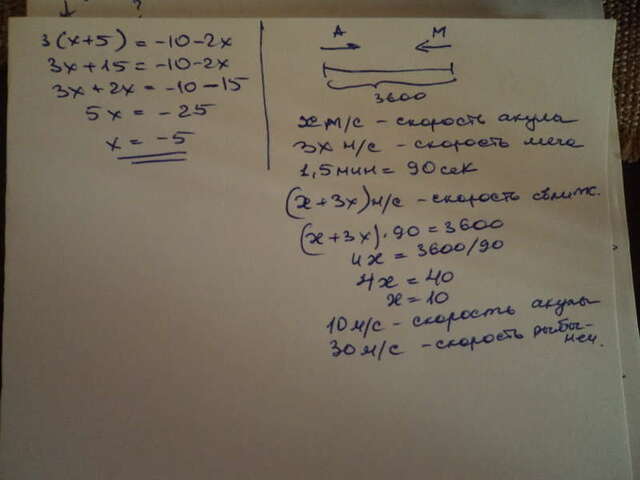 3(x+5) = -10-2x
3x+15 = -10-2x
3x+2x = -10-15
5x = -25
x = -5
A M
3600
x м/с - скорость акулы
3x м/с - скорость меча
1,5 мин = 90 сек
(x+3x) м/с - скорость сближ.
(x+3x)·90 = 3600
4x = 3600/90
4x = 40
x = 10
10 м/с - скорость акулы
30 м/с - скорость рыбы-
меч.